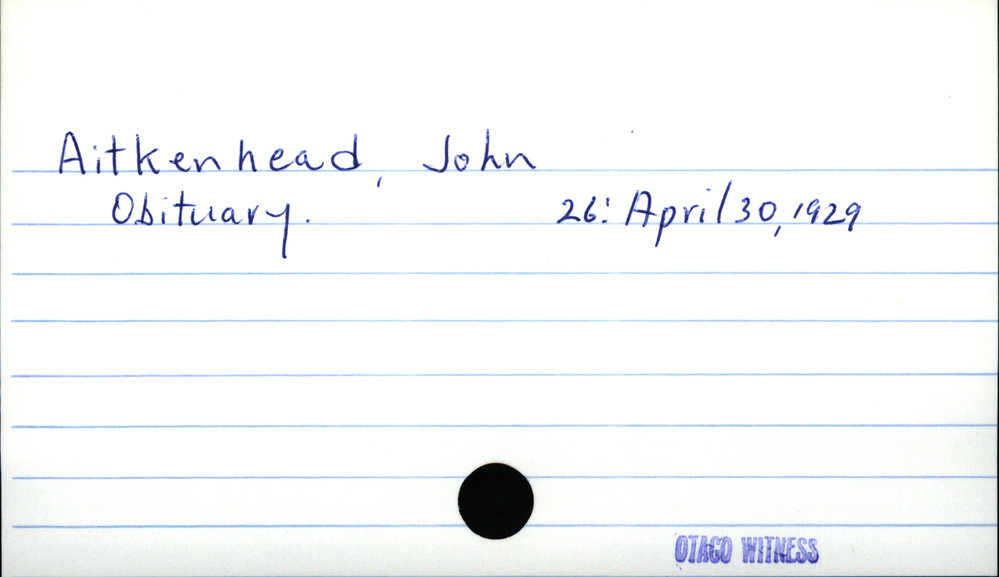 Aitkenhead, John
Obituary. 26: April 30, 1929
OTAGO WITNESS